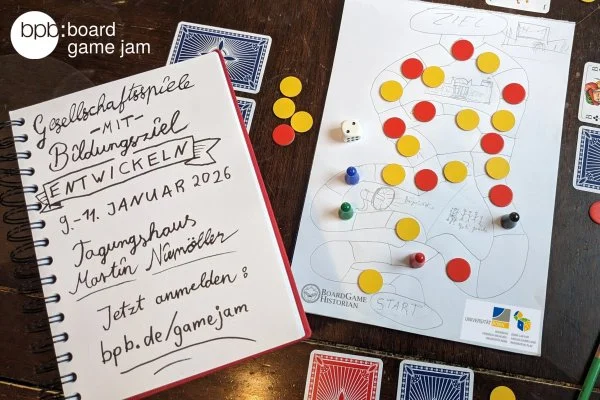 bpb: board
game jam
Gesellschaftsspiele
-MIT-
Bildungsziel
ENTWICKELN
9.-11. JANUAR 2026
Tagungshaus
Martin Niemöller
Jetzt anmelden:
bpb.de/gamejam
ZIEL
BOARDGAME
HISTORIAN
START
UNIVERSITÄT